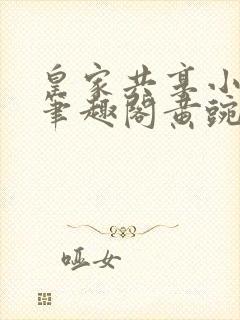 皇家共享小
笔趣阁黄豌
哑女